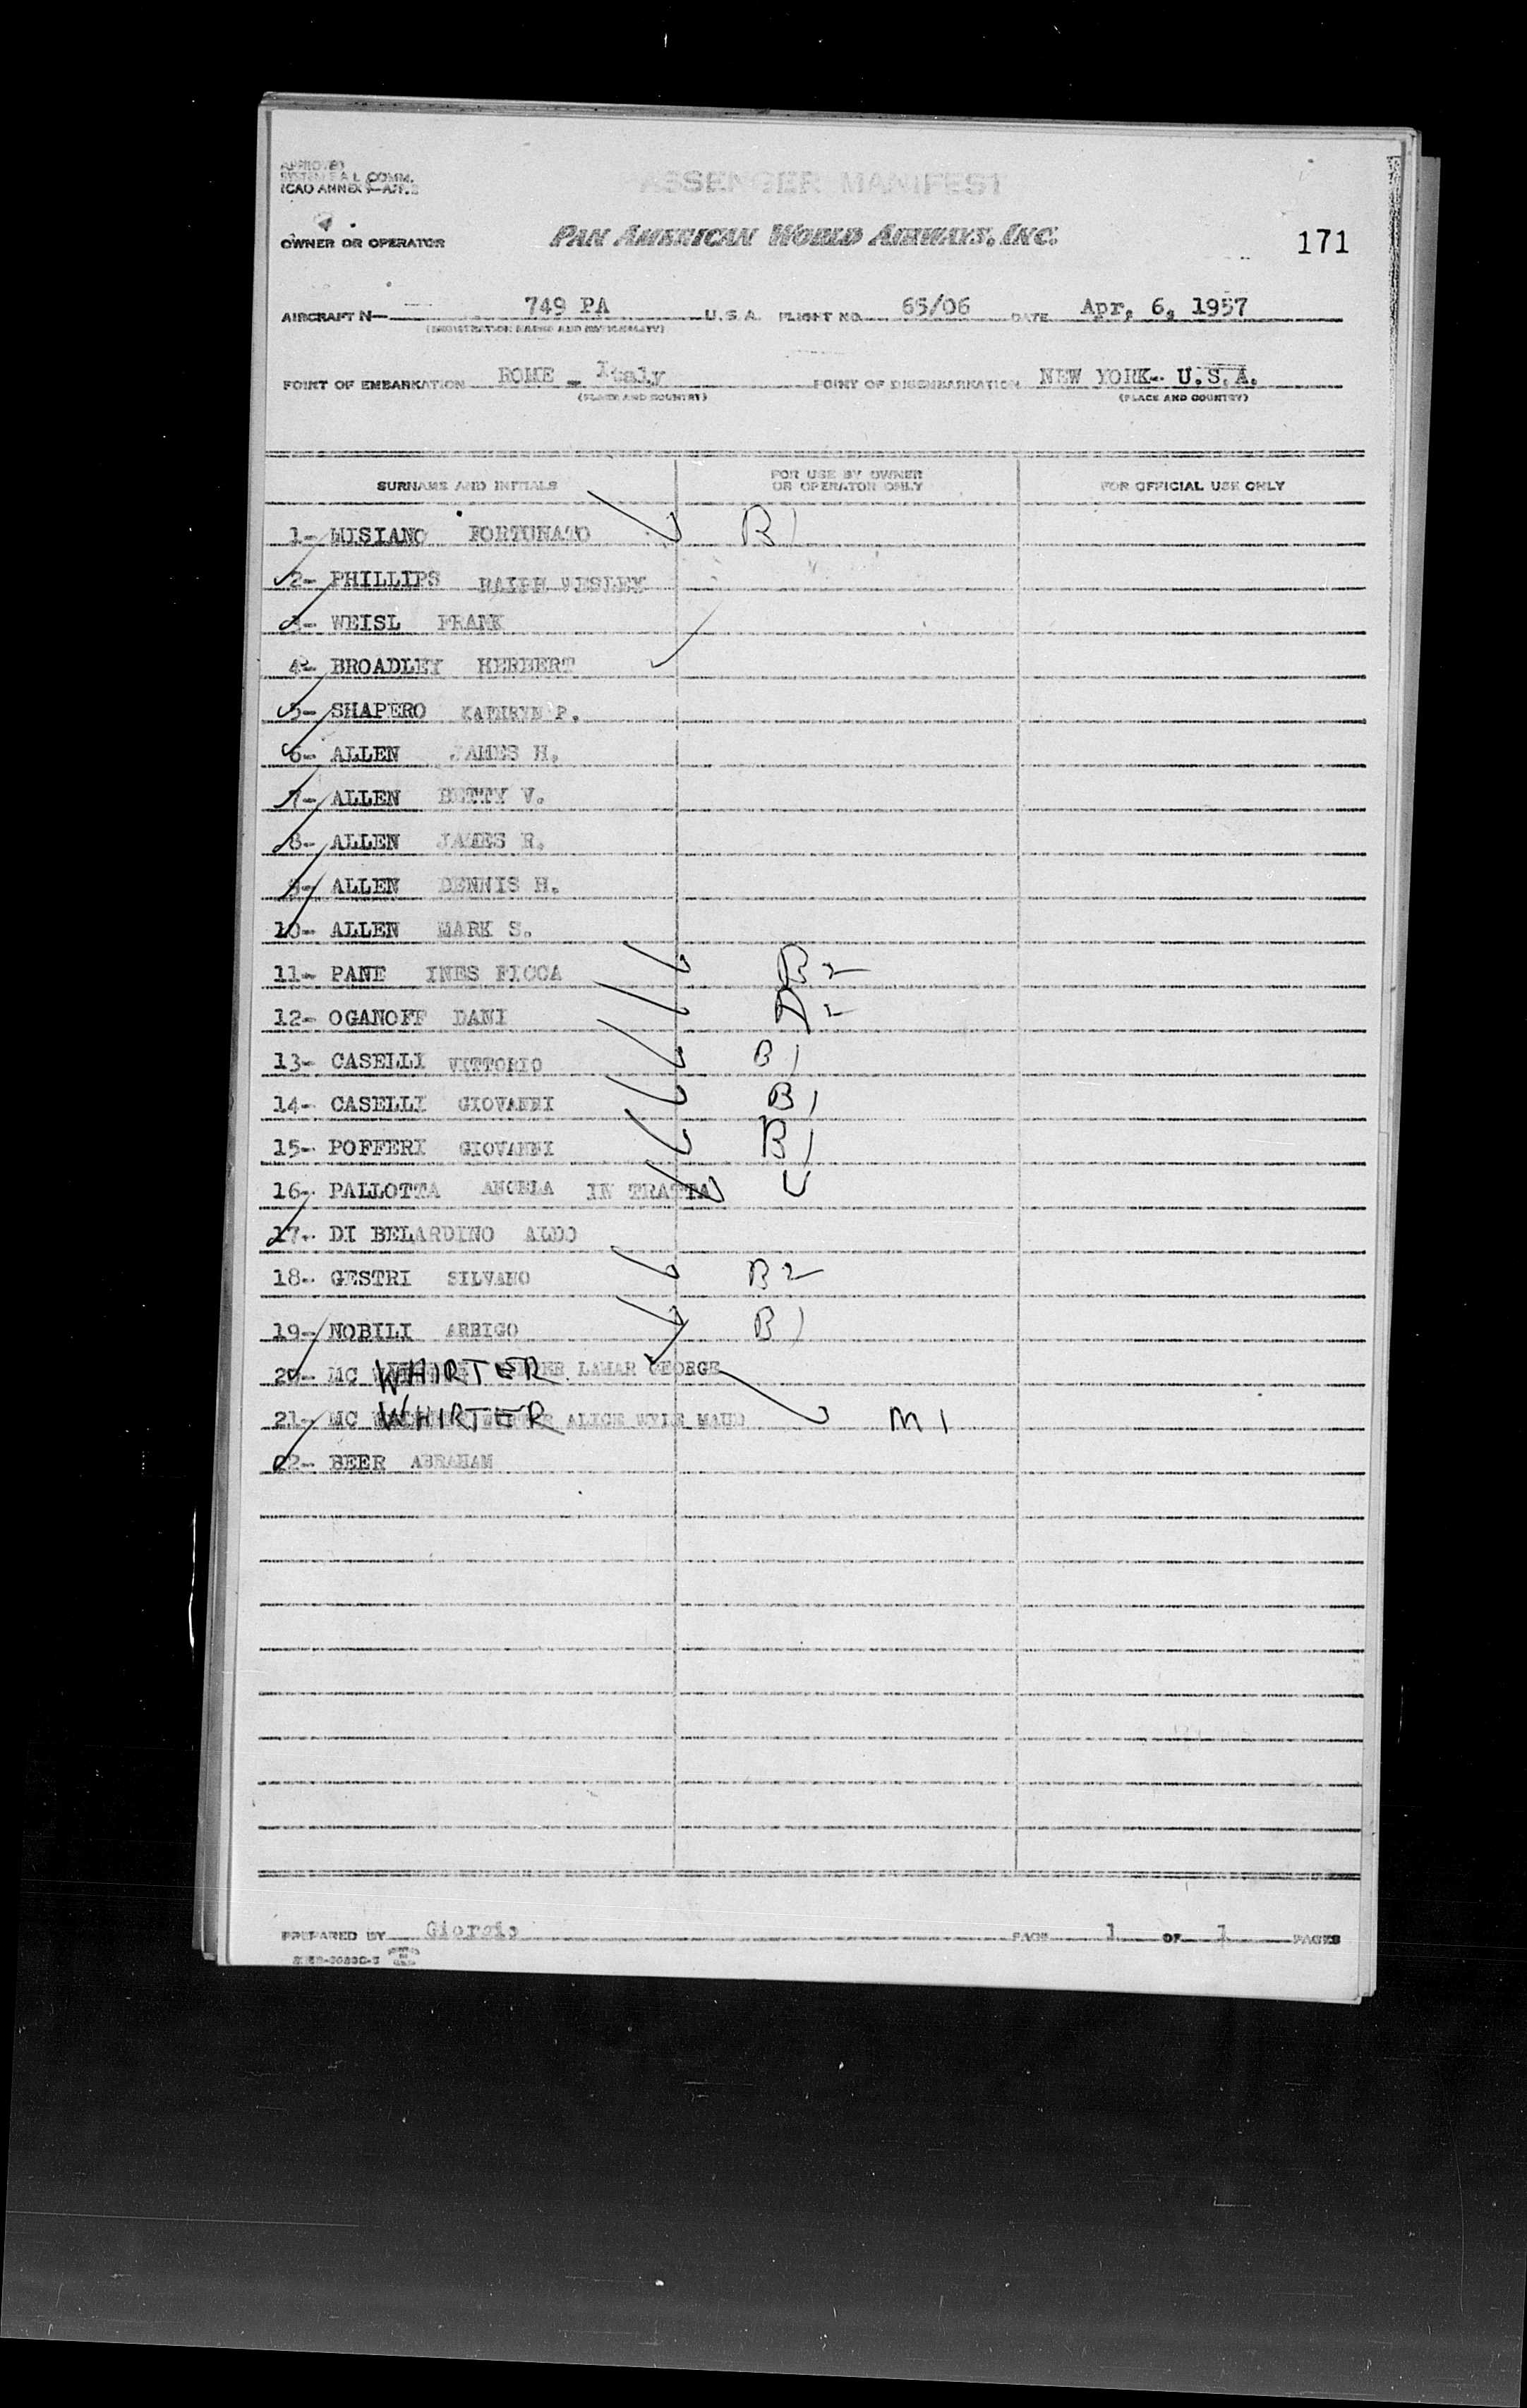 APPROVED
SYSTEM F A L COMM.
ICAO ANNEX 9-APP.
PASSENGER MANIFEST
OWNER OR OPERATOR PAN AMERICAN WORLD AIRWAYS, INC. 171
AIRCRAFT N- 749 PA U.S.A. FLIGHT NO. 65/06 DATE Apr, 6, 1957
(REGISTRATION MARKS AND NATIONALITY)
POINT OF EMBARKATION ROME - Italy POINT OF DISEMBARKATION NEW YORK- U.S.A.
(PLACE AND COUNTRY) (PLACE AND COUNTRY)
SURNAME AND INITIALS FOR USE BY OWNER OR OPERATOR ONLY FOR OFFICIAL USE ONLY
1- MISIANO FORTUNATO B1
2- PHILLIPS RALPH WESLEY
3- WEISL FRANK
4- BROADLEY HERBERT
5- SHAPERO KATHRYN P.
6- ALLEN JAMES H.
7- ALLEN BETTY V.
8- ALLEN JAMES R.
9- ALLEN DENNIS H.
10- ALLEN MARK S.
11- PANE INES FICCA B2
12- OGANOFF DANI D2
13- CASELLI VITTORIO B1
14- CASELLI GIOVANNI B1
15- POFFERI GIOVANNI B1
16- PALLOTTA ANGELA IN TRATTA U
17- DI BELARDINO ALDO
18- GESTRI SILVANO B2
19- NOBILI ARRIGO B1
20- MC WHIRTER LAMAR GEORGE
21- MC WHIRTER ALICE WYLE MAUD M1
22- BEER ABRAHAM
PREPARED BY Giorgio PAGE 1 OF 1 PAGES